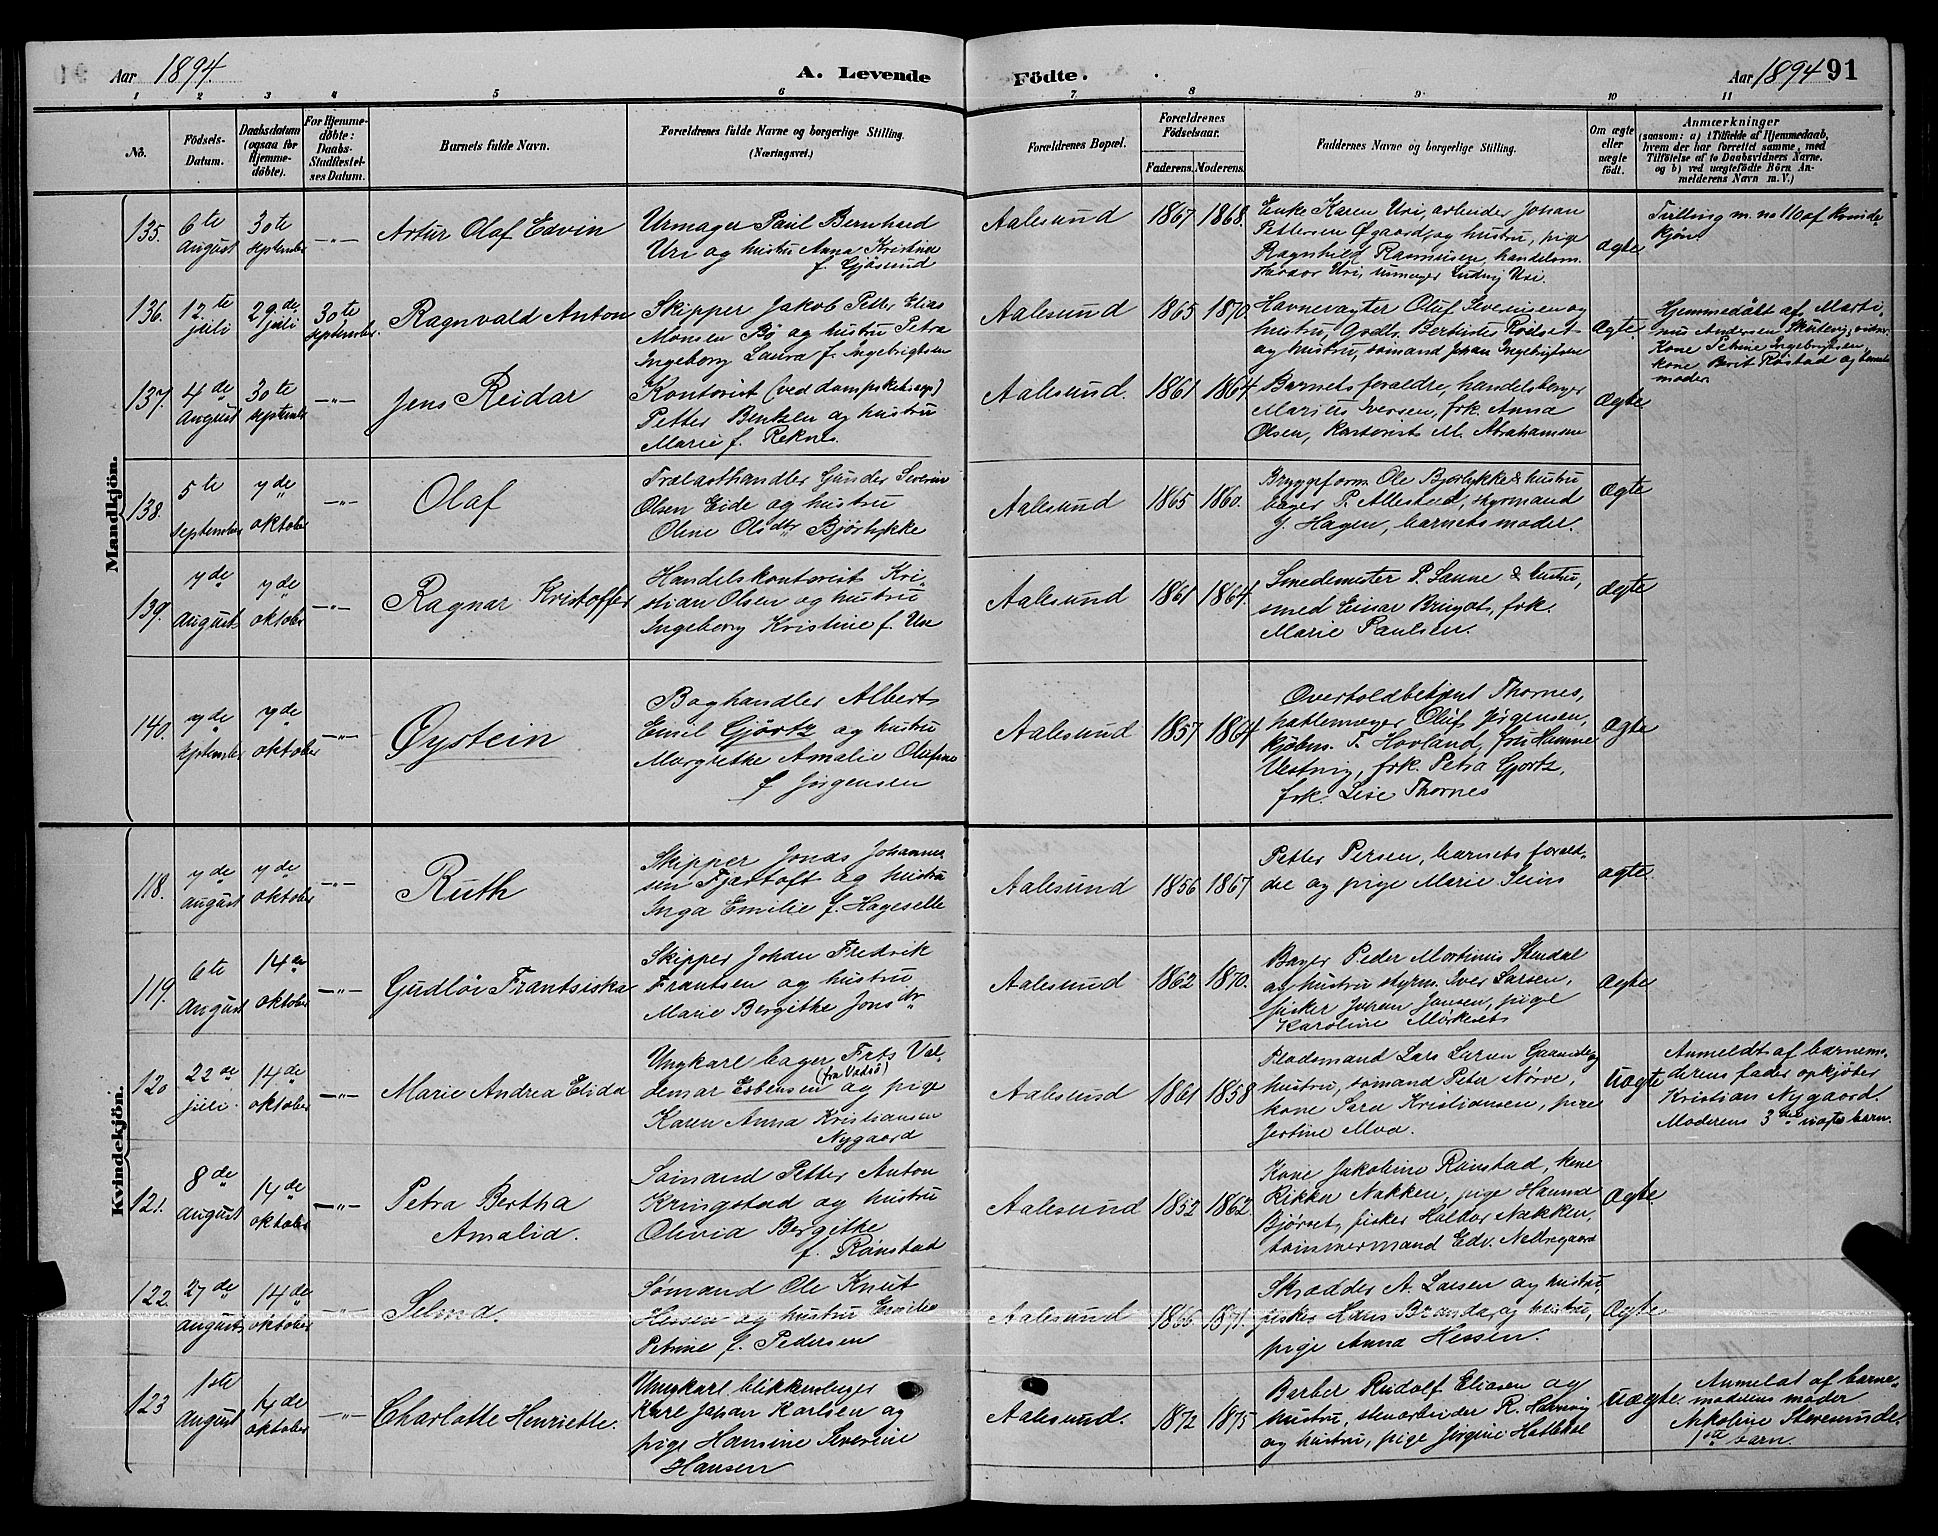 Aar 1894. A. Levende Födte. Aar 1894 91
1 2 3 4 5 6 7 8 9 10 11
No. Födsels-Datum. Daabsdatum (ogsaa for Hjemme-döbte). For Hjemme-döbte: Daabs-Stadfæstel-ses Datum. Barnets fulde Navn. Forældrenes fulde Navne og borgerlige Stilling. (Næringsvei.) Forældrenes Bopæl. Forældrenes Födselsaar. Faderens. Moderens. Faddernes Navne og borgerlige Stilling. Om ægte eller uægte födt. Anmærkninger (saasom: a) i Tilfælde af Hjemmedaab, hvem der har forrettet samme, med Tilföielse af to Daabsvidners Navne, og b) ved uægtefödte Börn An-melderens Navn m. V.)
Mandkjön.
135. 6te august 30te september —"— Artur Olaf Edvin
Urmager Paul Bernhard
Uri og hustru Anna Kristine
f. Gjøsund
Aalesund 1867 1868.
Enke Karen Uri, arbeider Johan
Pettersen Øgaard og hustru, pige
Ragnhild Rasmusen, handelsm.
Uri, urmager Ludvig Uri.
ægte
Tvilling m. no 110 af kvinde-
kjøn.
136. 12te juli 29de juli 30te september. Ragnvald Anton
Skipper Jakob Petter Elias
Monsen Bø og hustru Petra
Ingeborg Laura f. Ingebrigtsen
Aalesund 1865 1870
Havnevagter Oluf Severinsen og
hustru,
og hustru, sømand Johan Ingebrigtsen
Ægte.
Hjemmedøbt af Marti-
nus Andersen
Kone Petrine Ingebrigtsen,
kone Berit Røstad og barnets
moder
137. 4de august 30te septembr —"— Jens Reidar
Kontorist (ved dampskibsexp.)
Petter Bentzen og hustru
Marie f. Reknes.
Aalesund. 1861 1864
Barnets forældre, handelsborger
Marius Iversen, frk. Anna
Olsen, kontorist M. Abrahamsen
Ægte
138. 5te september 7de oktober —"— Olaf
Trælasthandler Gunder Severin
Olsen Eide og hustru
Oline Olsdtr Bjørlykke
Aalesund 1865 1860.
Bryggeform. Ole Bjørlykke & hustru
bager P. Allestad, styrmand
J. Hagen, barnets moder.
Ægte
139. 7de august 7de oktober —"— Ragnar Kristoffer
Handelskontorist Kri-
stian Olsen og hustru
Ingeborg Kristine f. Uri
Aalesund 1861 1864.
Smedemester P. Saune & hustru,
smed Einar Bruget, frk.
Marie Paulsen.
ægte
140. 7de september 7de oktober —"— Øystein
Boghandler Alberts
Emil Gjørtz og hustru
Margrethe Amalie Olufine
f Jørgensen
Aalesund 1857 1864
Overtoldbetjent Thornes,
hattemager Oluf Jørgensen,
kjøbm. T. Hovland, fru Hanna
Vestnig, frk. Petra Gjørtz,
frk. Lise Thornes
Ægte
Kvindekjön.
118. 7de august 7de oktober —"— Ruth
Skipper Jonas Johannes-
sen Fjørtoft og hustru
Inga Emilie f. Hageselle
Aalesund 1856 1867
Petter Persen, barnets foræld-
re og pige Marie Seims
ægte.
119. 6te August 14de oktober —"— Gudlöi Frantsiska
Skipper Johan Fredrik
Frantsen og hustru
Marie Bergithe Jonsdr
Aalesund 1862 1870.
Bager Peder Martinus Stendal
og hustru styrm. Iver Larsen,
fisker Johan Jansen, pige
Karoline Mørkeset
Ægte
120 22de juli. 14de oktober —"— Marie Andrea Elida
Ungkarl bager Frts Val-
demar Esbensen (fra Vadsö) og pige
Karen Anna Kristiansen
Nygaard
Aalesund 1861 1858
Pladsmand Lars Larsen
hustru, sømand Peter Nörve,
kone Sara Kristiansen, pige
Jertine Moa.
Uægte
Anmeldt af barnemo-
derens fader opkjøber
Kristian Nygaard.
Moderens 3die uægte barn.
121. 8de august 14de oktober —"— Petra Bertha
Amalia.
Sömand Petter Anton
Kringstad og hustru
Olivia Bergithe
f. Rønstad
Aalesund 1852 1862.
Kone Jakobine Rønstad, kone
Rikka Nakken, pige Hanna
Bjørset, fisker Haldor Nakken,
tømmermand Edv. Nedregaard
Ægte
122. 27de august 14de oktober —"— Selma.
Sømand Ole Knut
Hessen og hustru Emilie
Petrine f. Pedersen
Aalesund 1866 1871.
Skrædder A. Larsen og hustru,
fisker Hans Branda og hustru,
pige Anna Hessen.
Ægte
123 1ste august 14de oktober —"— Charlotte Henriette.
Ungkarl blikkenslager
Karl Johan Karlsen og
pige Hansine Severine
Hansen
Aalesund. 1872 1875
Barber Rudolf Eliasen og
hustru, stenarbeider R.
og hustru, pige Jørgine
uægte.
Anmeldt af barne-
moderens moder
Nikoline
1ste barn.